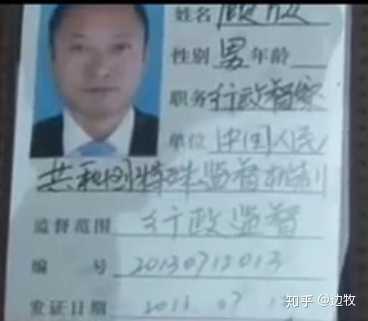 姓名 顾欣
性别 男 年龄
职务 行政督察
单位 中国人民
共和国特殊监督机制
监督范围 行政监督
编 号 20130712013
发证日期 2013.07.1
知乎 @边牧